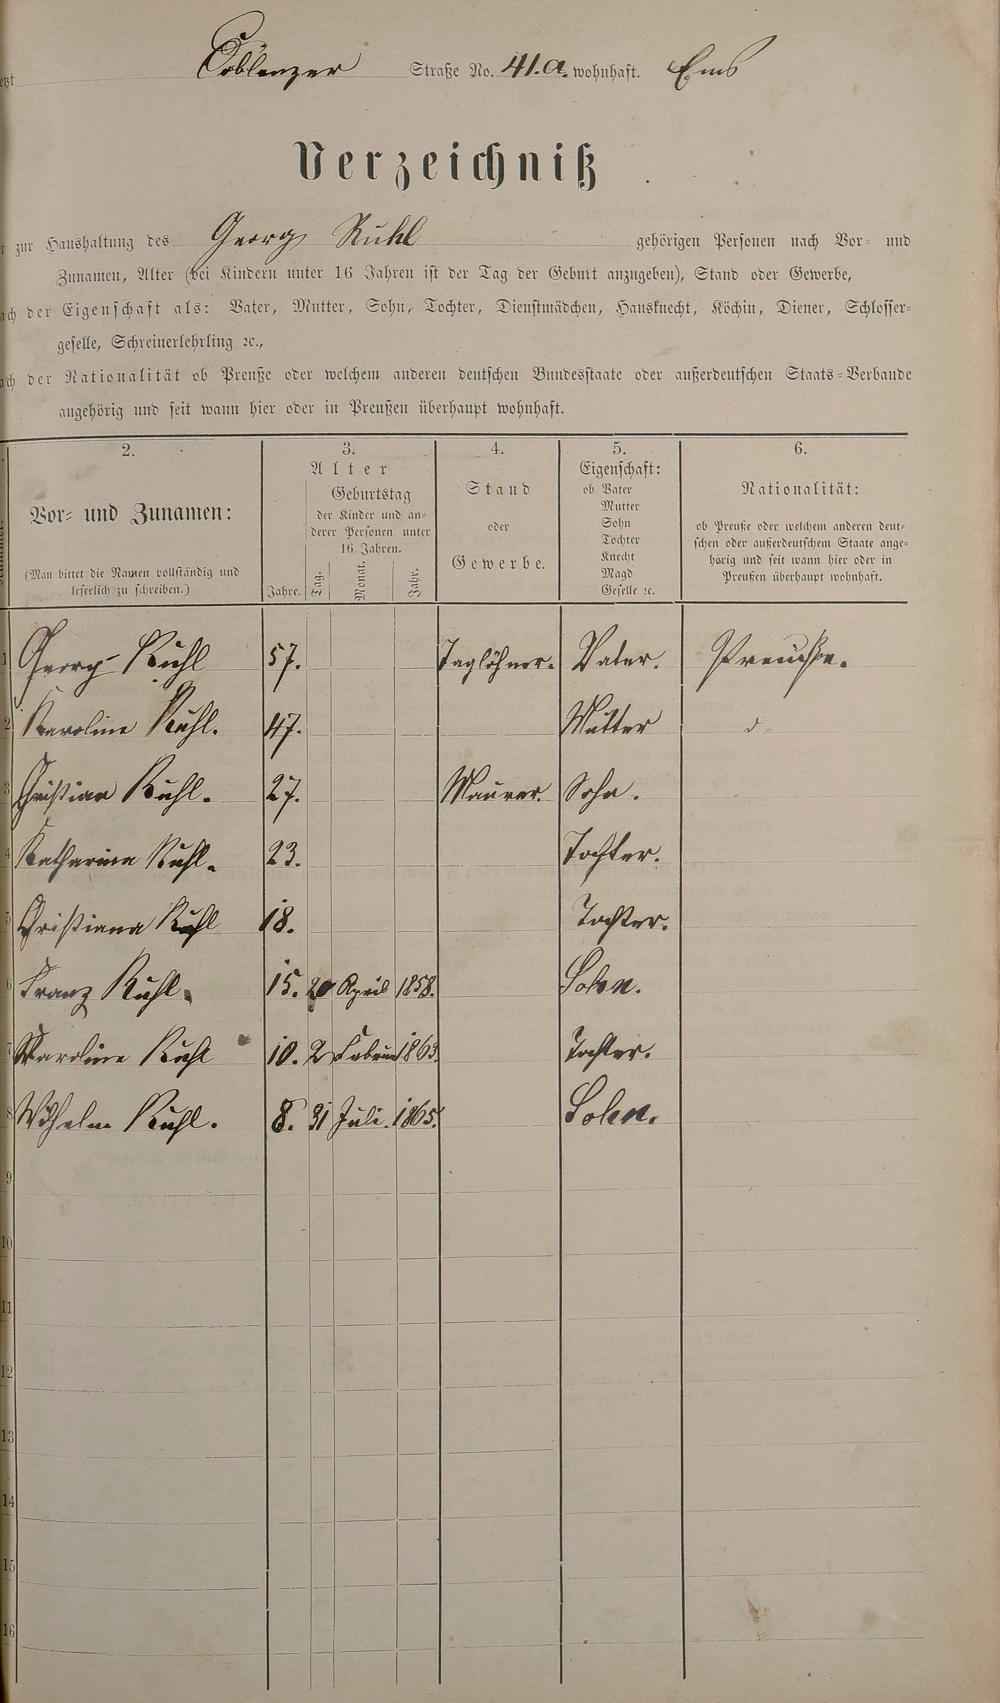 Coblenzer Straße No. 41.a. wohnhaft. Ems
Verzeichniß
zur Haushaltung des Georg Ruhl gehörigen Personen nach Vor- und
Zunamen, Alter (bei Kindern unter 16 Jahren ist der Tag der Geburt anzugeben), Stand oder Gewerbe,
der Eigenschaft als: Vater, Mutter, Sohn, Tochter, Dienstmädchen, Hausknecht, Köchin, Diener, Schlosser-
geselle, Schreinerlehrling ꝛc.,
der Nationalität ob Preuße oder welchem anderen deutschen Bundesstaate oder außerdeutschen Staats-Verbande
angehörig und seit wann hier oder in Preußen überhaupt wohnhaft.
2. 3. 4. 5. 6.
Vor- und Zunamen:
(Man bittet die Namen vollständig und
leserlich zu schreiben.)
Alter
Geburtstag
der Kinder und an-
derer Personen unter
16 Jahren.
Jahre. Tag. Monat. Jahr.
Stand
oder
Gewerbe.
Eigenschaft:
ob Vater
Mutter
Sohn
Tochter
Knecht
Magd
Geselle ꝛc.
Nationalität:
ob Preuße oder welchem anderen deut-
schen oder außerdeutschem Staate ange-
hörig und seit wann hier oder in
Preußen überhaupt wohnhaft.
1 Georg Ruhl 57. Taglöhner. Vater. Preuße.
2 Karoline Ruhl. 47. Mutter d
3 Christian Ruhl. 27. Maurer. Sohn.
4 Katharina Ruhl. 23. Tochter.
5 Christiana Ruhl 18. Tochter.
6 Franz Ruhl. 15. 20 April 1858. Sohn.
7 Karoline Ruhl 10. 2 Februar 1863. Tochter.
8 Wilhelm Ruhl. 8. 31 Juli. 1865. Sohn.
9
10
11
12
13
14
15
16